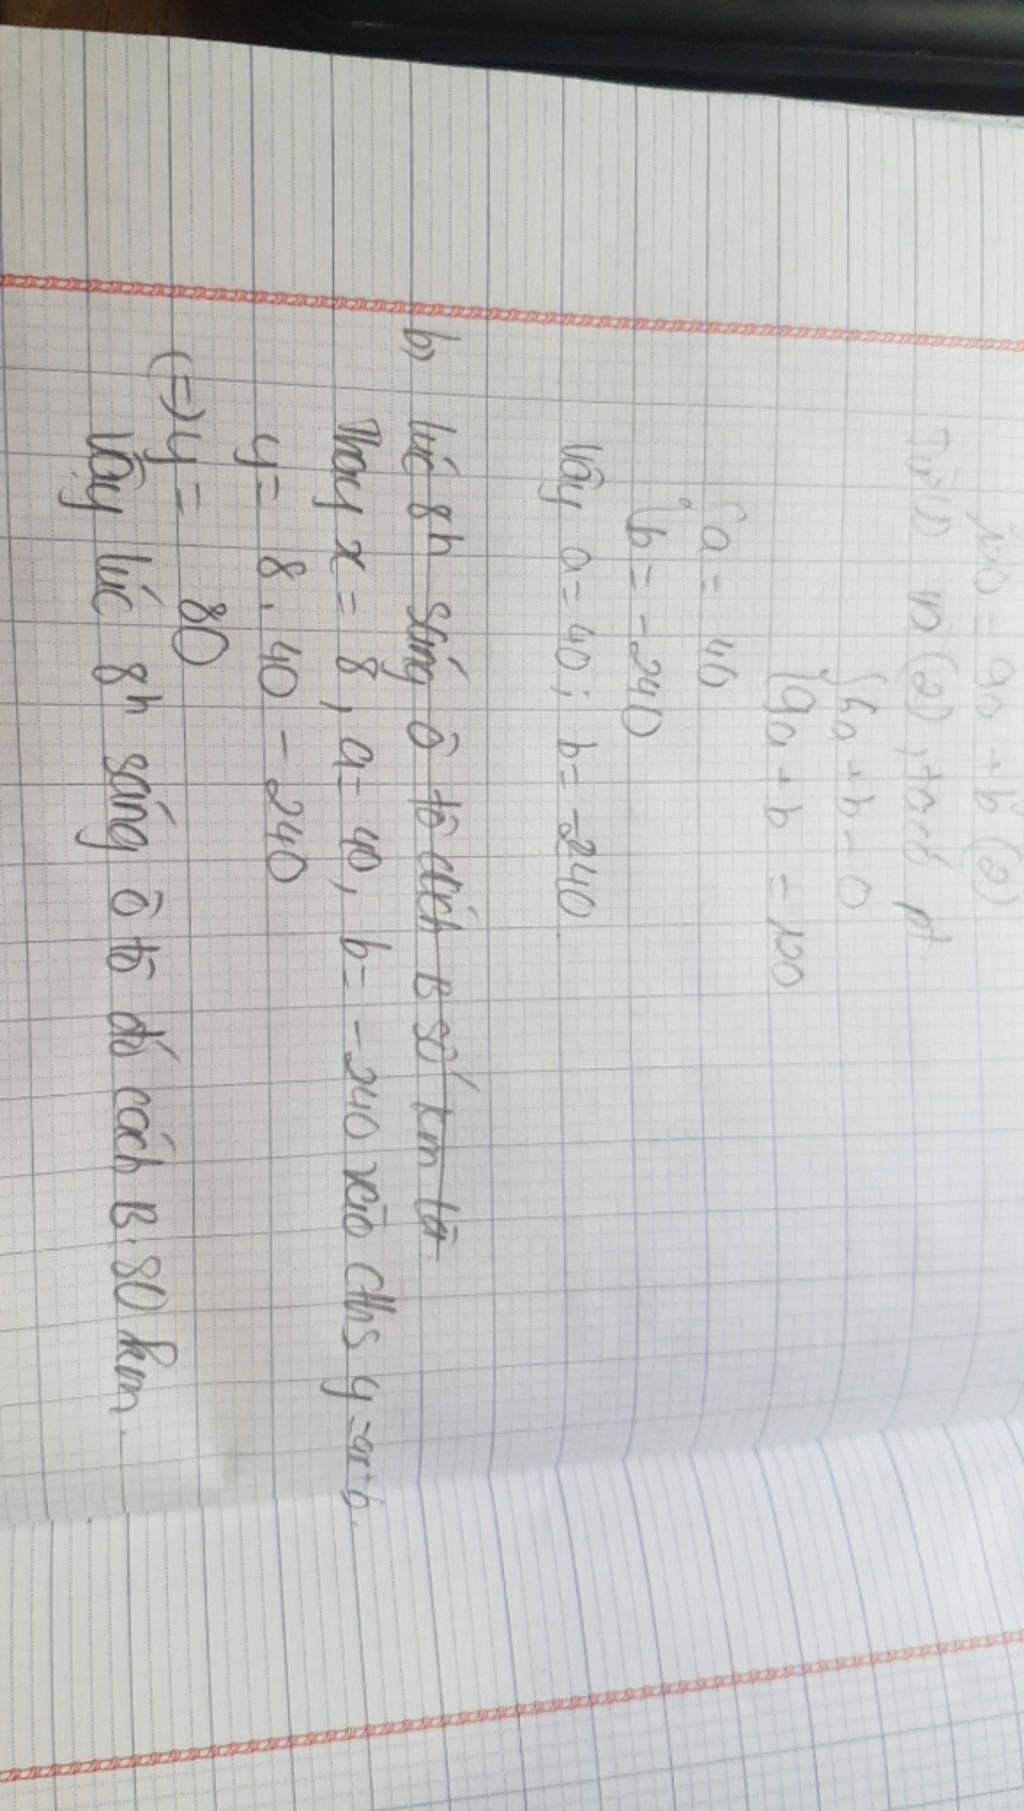 120 = 9a + b (2)
Từ (1) và (2), ta có pt
{6a + b = 0
{9a + b = 120
{a = 40
{b = -240
Vậy a = 40; b = -240.
b) lúc 8h sáng ô tô cách B số km là:
Thay x = 8, a = 40, b = -240 vào cths y = ax+b.
y = 8.40 - 240
(=) y = 80
Vậy lúc 8h sáng ô tô đó cách B 80 km.